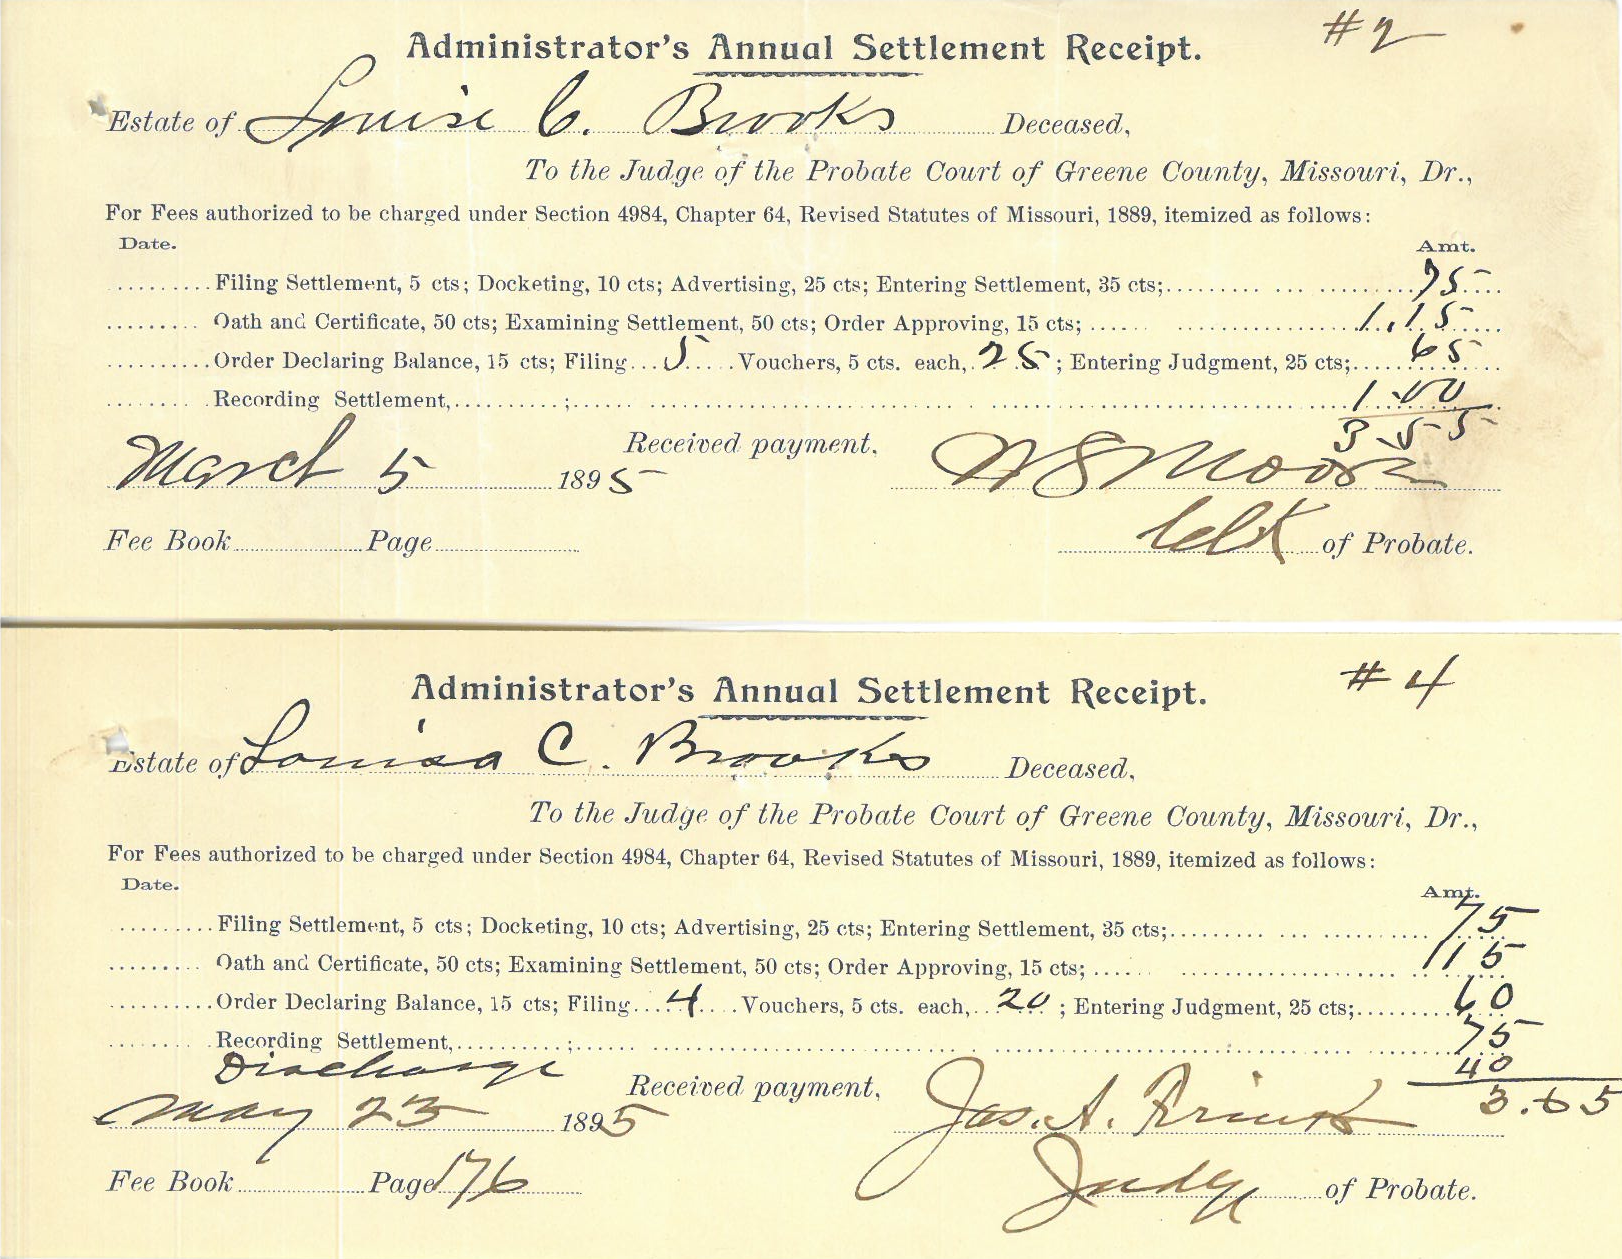 Administrator's Annual Settlement Receipt. #2
Estate of Louise C. Brooks Deceased,
To the Judge of the Probate Court of Greene County, Missouri, Dr.,
For Fees authorized to be charged under Section 4984, Chapter 64, Revised Statutes of Missouri, 1889, itemized as follows:
Date. Amt.
Filing Settlement, 5 cts; Docketing, 10 cts; Advertising, 25 cts; Entering Settlement, 35 cts; 75
Oath and Certificate, 50 cts; Examining Settlement, 50 cts; Order Approving, 15 cts; 1.15
Order Declaring Balance, 15 cts; Filing 5 Vouchers, 5 cts. each, 25; Entering Judgment, 25 cts; 65
Recording Settlement, ; 1.00
3.55
Received payment,
March 5 1895 W S Moore
Clk of Probate.
Fee Book Page
Administrator's Annual Settlement Receipt. #4
Estate of Louisa C. Brooks Deceased,
To the Judge of the Probate Court of Greene County, Missouri, Dr.,
For Fees authorized to be charged under Section 4984, Chapter 64, Revised Statutes of Missouri, 1889, itemized as follows:
Date. Amt.
Filing Settlement, 5 cts; Docketing, 10 cts; Advertising, 25 cts; Entering Settlement, 35 cts; 75
Oath and Certificate, 50 cts; Examining Settlement, 50 cts; Order Approving, 15 cts; 115
Order Declaring Balance, 15 cts; Filing 4 Vouchers, 5 cts. each, 20; Entering Judgment, 25 cts; 60
Recording Settlement, ; 75
Discharge 40
3.65
Received payment,
May 23 1895 Jas. A.
Fee Book Page 176 Judge of Probate.